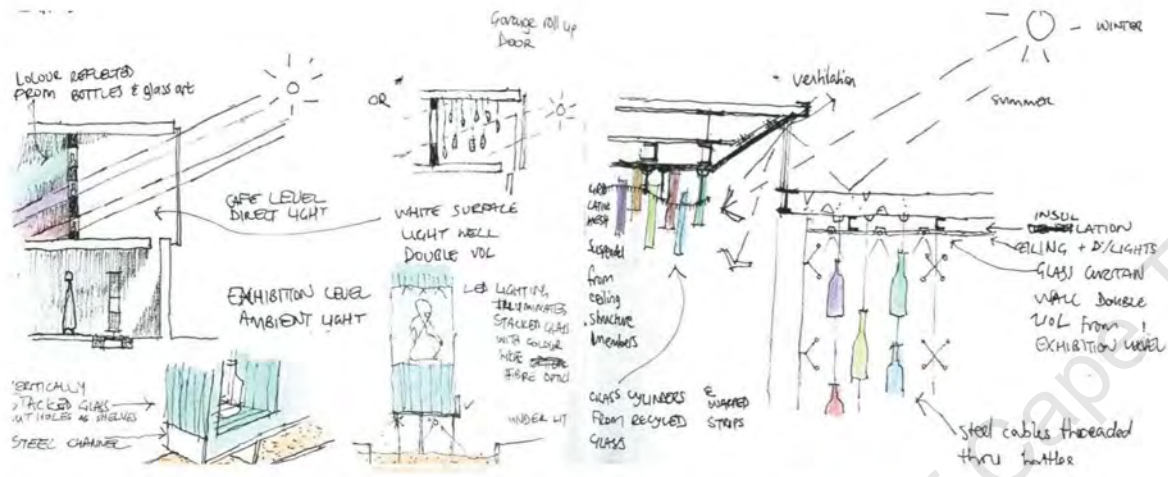 COLOUR REFLECTED
FROM BOTTLES & glass art
CAFE LEVEL
DIRECT LIGHT
EXHIBITION LEVEL
AMBIENT LIGHT
VERTICALLY
STACKED GLASS
CUT HOLES AS SHELVES
STEEL CHANNEL
Garage roll up
DOOR
OR
WHITE SURFACE
LIGHT WELL
DOUBLE VOL
LED LIGHTING
ILLUMINATES
STACKED GLASS
WITH COLOUR
FIBRE OPTIC
UNDER LIT
ventilation
WINTER
summer
MESH
Suspended
from
ceiling
structure
members
GLASS CYLINDERS &
FROM RECYCLED
GLASS
WARPED
STRIPS
INSUL
LATION
CEILING + D/LIGHTS
GLASS CURTAN
WALL DOUBLE
VOL FROM
EXHIBITION LEVEL
steel cables threaded
thru bottles
Cape T